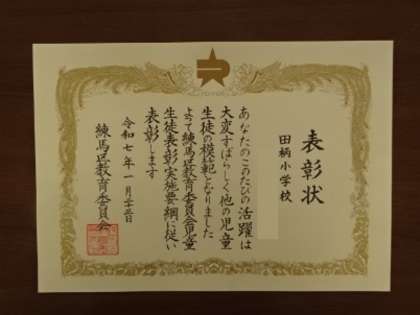 表彰状
田柄小学校
あなたのこのたびの活躍は
大変すばらしく他の児童
生徒の模範となりました
よって練馬区教育委員会児童
生徒表彰実施要綱に従い
表彰します
令和七年一月
練馬区教育委員会